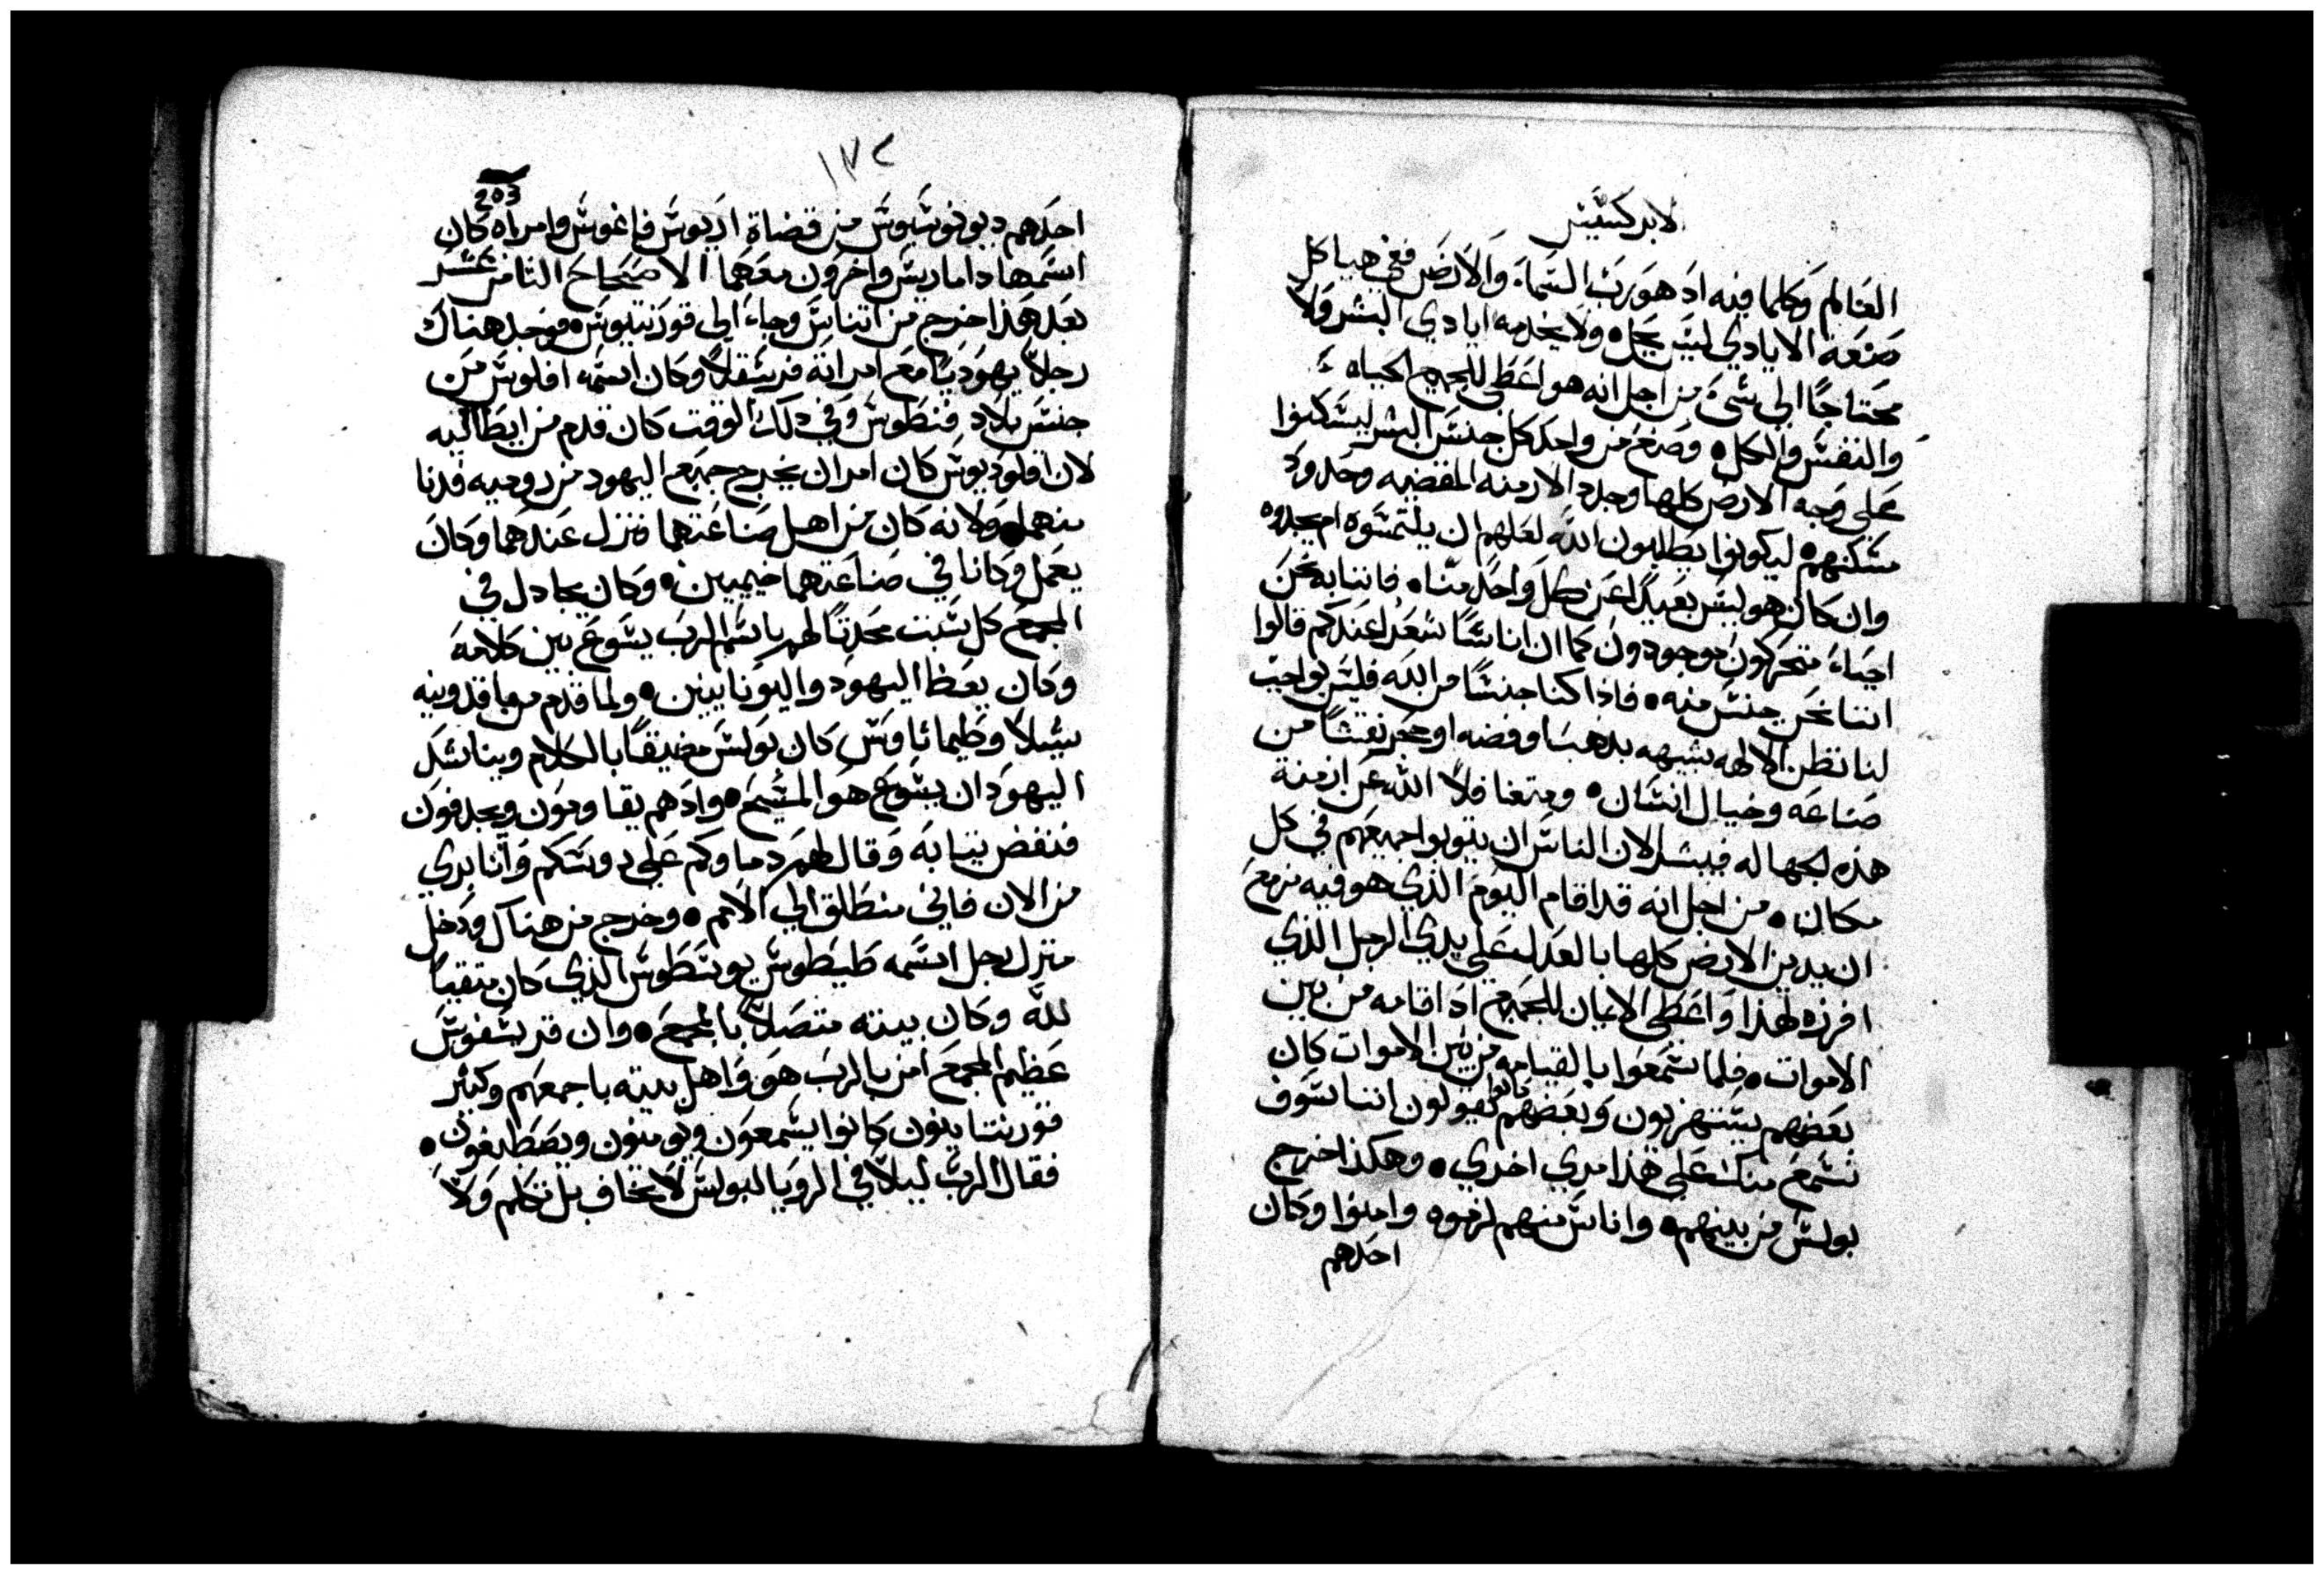 لابركسيس
العالم وكلما فيه اد هو رب السماء والارض ففي هياكل
صنعة الايادي ليس يحل ولا يخدمه ايادي البشر ولا
محتاجًا الى شيء من اجل انه هو اعطى للجميع الحياه
والنفس والكل وصنع من واحد كل جنس البشر ليسكنوا
على وجه الارض كلها وحدد الازمنه المقضيه وحدود
مسكنهم ليكونوا يطلبون الله لعلهم ان يلتمسوه ام يجدوه
وان كان هو ليس بعيدًا عن كل واحد منا فاننا به نحن
احياء متحركون موجودون كما ان اناسًا شعرا عندكم قالوا
اننا نحن جنس منه فاذا كنا جنسًا من الله فليس بواجب
لنا نظن الالهه شبيهه بدهب او فضه او حجر نقشًا من
صناعه وخيال انسان ومتغافلًا الله عن ازمنة
هذه الجهاله فبشر الان الناس ان يتوبوا جميعهم في كل
مكان من اجل انه قد اقام اليوم الذي هو فيه مزمع
ان يدين الارض كلها بالعدل على يدي الرجل الذي
افرزه لهذا واعطى الايمان للجميع اد اقامه من بين
الاموات فلما سمعوا بالقيامه من بين الاموات كان
بعضهم يستهزيون وبعضهم كانوا يقولون اننا سوف
نسمع منك على هذا مري اخري وهكذا خرج
بولس من بينهم واناس منهم لزموه وامنوا وكان
احدهم
١٧٢
203
احدهم ديونوسيوس من قضاة اريوس فاغوس وامراه كان
اسمها داماريس واخرون معهما الاصحاح الثامن عشر
بعد هذا خرج من اتناس وجاء الى قورنتيوس فوجد هناك
رجلًا يهوديًا مع امراته فريسقلا وكان اسمه اقلوس من
جنس بلاد فنطوس وفي ذلك الوقت كان قدم من ايطاليه
لان اقلوديوس كان امر ان يخرج جميع اليهود من روميه فدنا
منهما ولانه كان من اهل صناعتهما فنزل عندهما وكان
يعمل وكانا في صناعتهما خيميين وكان يجادل في
المجمع كل سبت محدثًا لهم باسم الرب يسوع بين كلامه
وكان يعظ اليهود واليونانيين ولما قدم من ماقدونيه
سيلا وطيماثاوس كان بولس مضيقًا بالكلام ويناشد
اليهود ان يسوع هو المسيح واد هم يقاومون ويجدفون
فنفض ثيابه وقال لهم دماوكم على روسكم وانا بري
من الان فاني منطلق الى الامم وخرج من هناك ودخل
منزل رجل اسمه طيطوس يوسطوس الذي كان متقيًا
لله وكان بيته متصلًا بالمجمع وان قريسفوس
عظيم المجمع امن بالرب هو واهل بيته باجمعهم وكثير
قورنتايون كانوا يسمعون ويومنون ويصطبغون
فقال الرب ليلًا في الرويا لبولس لا تخاف بل تكلم ولا